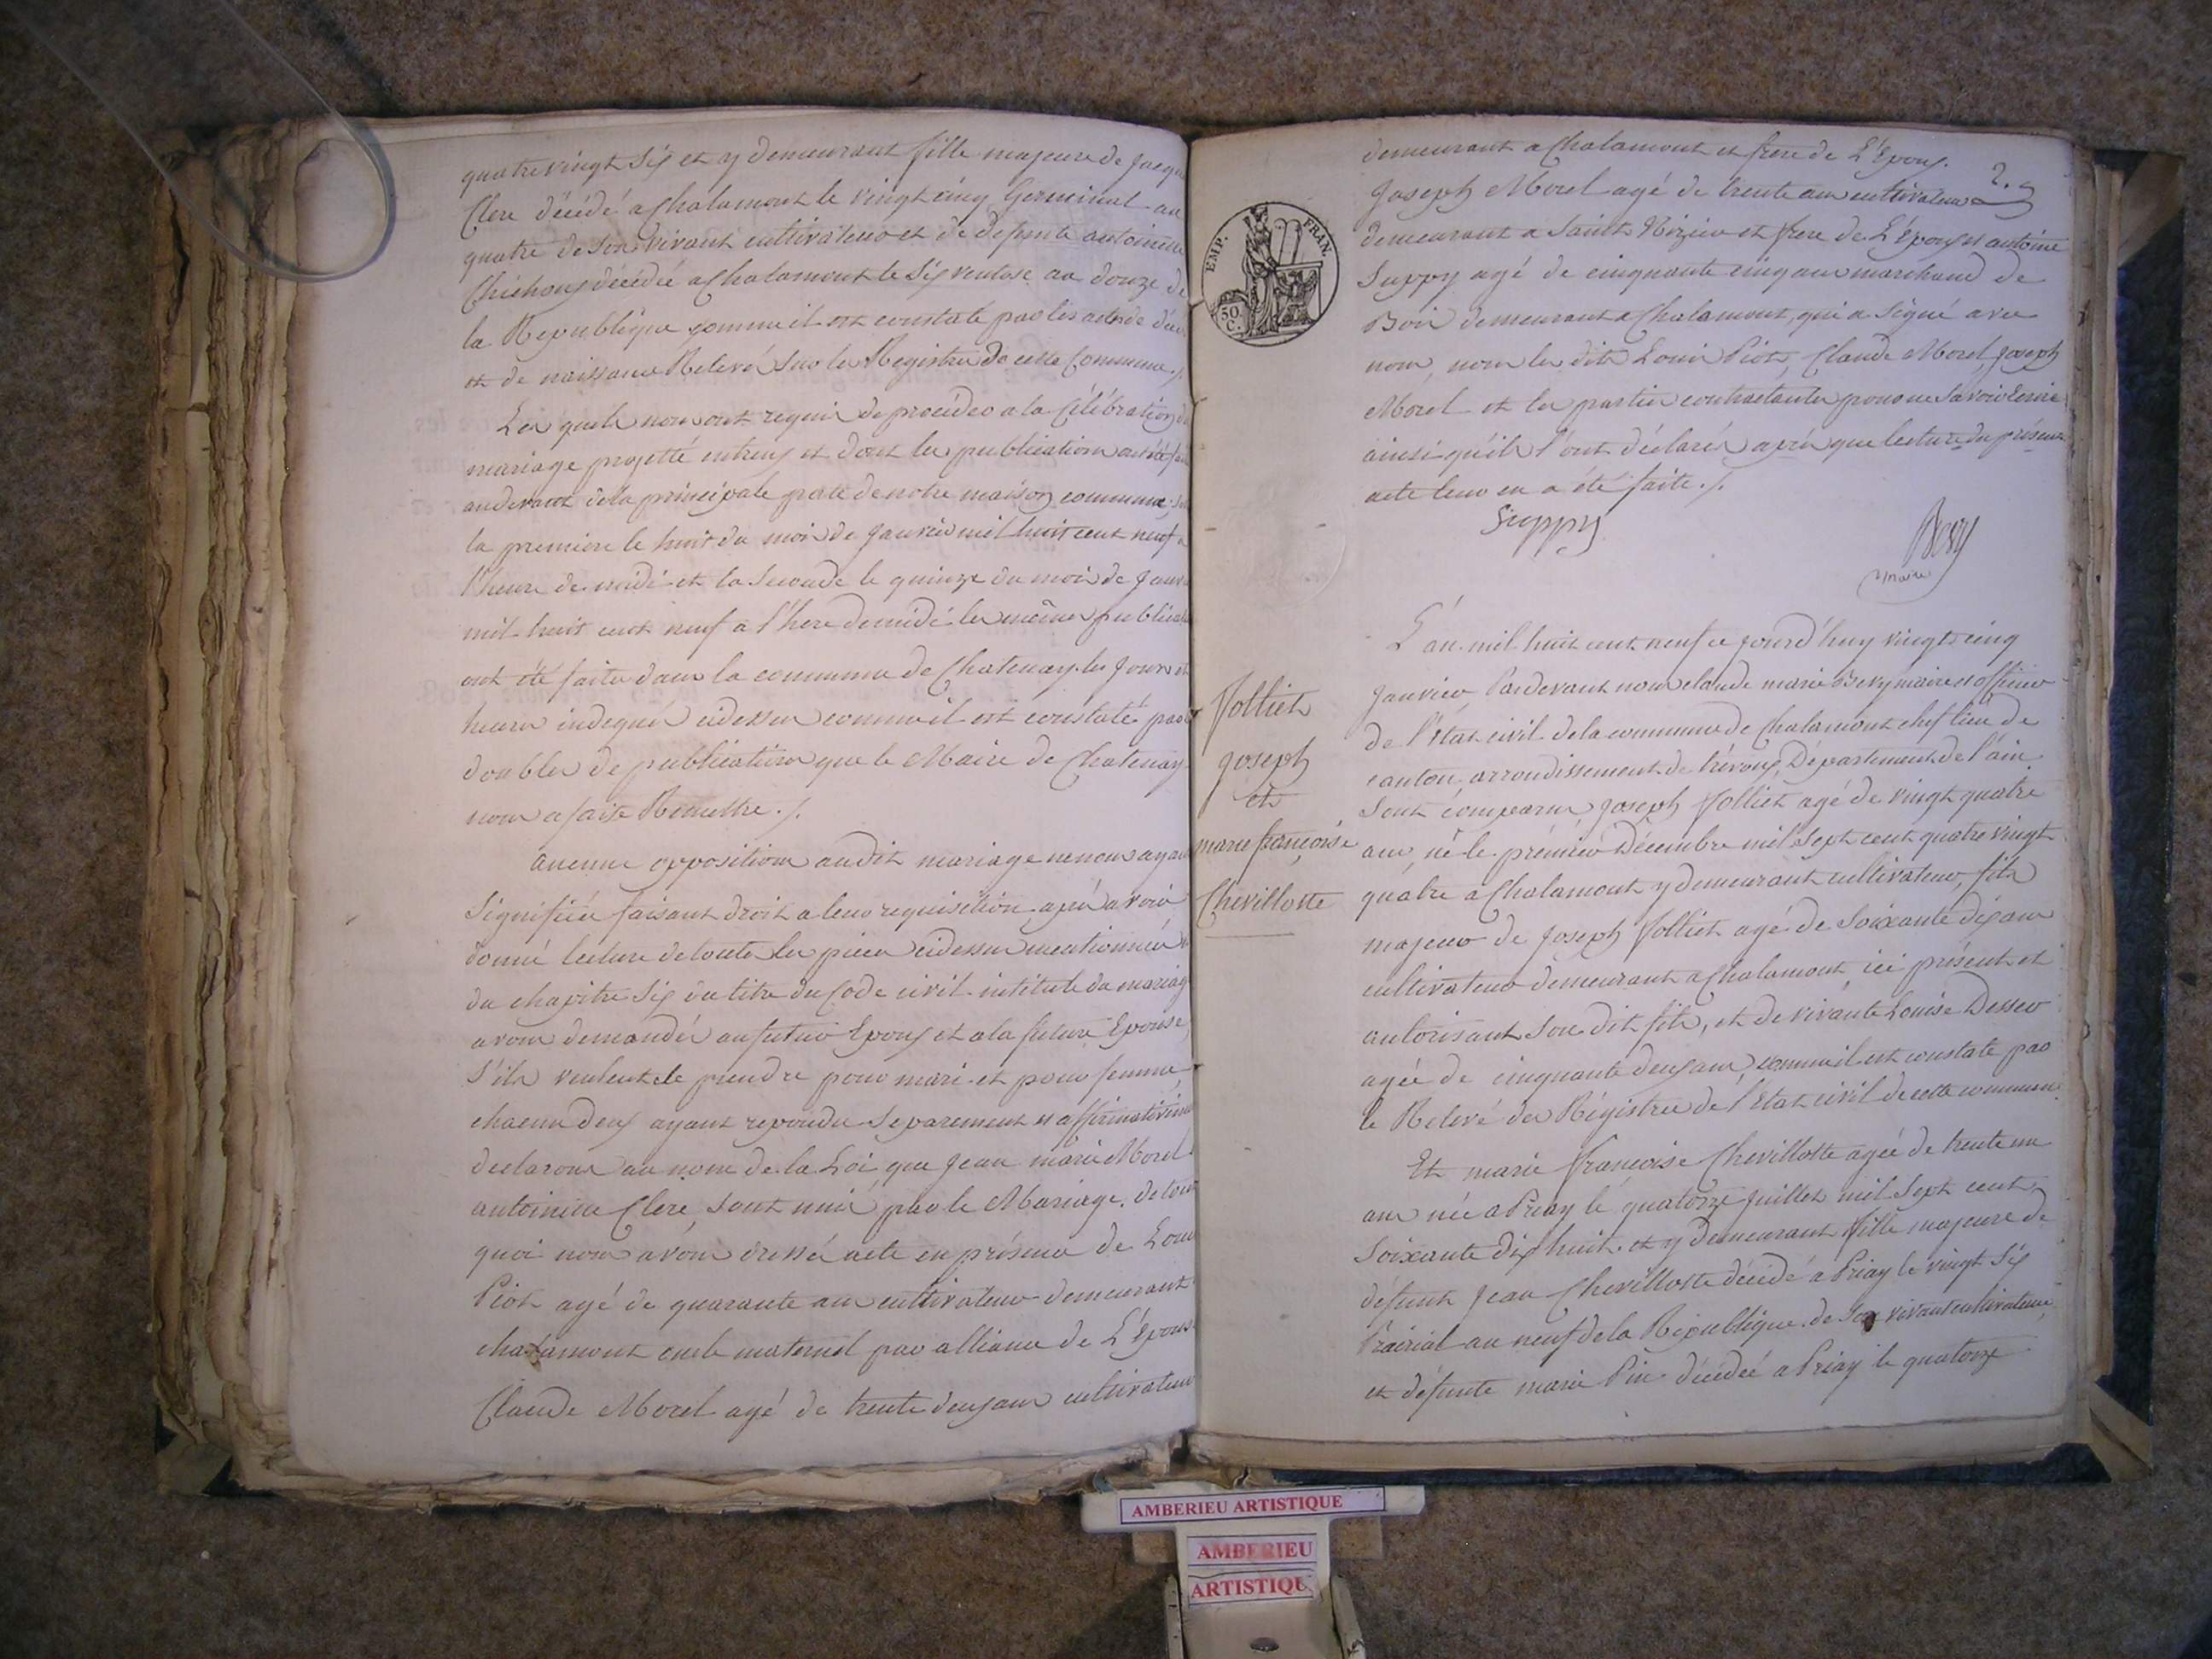 quatre vingt six et y demeurant fille majeure de Jacqu
Clerc décédé a Chalamont le vingt cinq Germinal an
quatre de son vivant cultivateur et de defunte antoinette
décédée a Chalamont le six ventose an douze de
la Republique comme il est constaté par les actes de
et de naissance Relevé sur les Registres de cette Commune ./.
Les quels nous ont requis de proceder a la Célébration du
mariage projetté entreux et dont les publications ont été
audevant de la principale porte de notre maison commune,
la premiere le huit du mois de Janvier mil huit cent neuf a
l'heure de midi et la seconde le quinze du mois de Janv
mil huit cent neuf a l'here de midi les mêmes publicat
ont été faites dans la commune de Chatenay les jours et
heures indequés cidessus comme il est constaté par
doubles de publications que le Maire de Chatenay
nous a fait Remettre ./.
aucune opposition audit mariage ne nous ayant
Signifiée faisant droit a leur requisition après avoir
donné lecture de toutes les pieces cidessus mentionnées
du chapitre six du titre du Code civil intitulé du mariag
avons demandés au futur Epoux et a la future Epouse
S'ils veulent se prendre pour mari et pour femme,
chacun deux ayant repondu separement et affirmativem
declarons au nom de la Loi que Jean marie Morel
antoinette Clerc, sont unis par le Mariage. de tout
quoi nous avons dressé acte en présence de Louis
Piot agé de quarante ans cultivateur demeurant
chalamont oncle maternel par alliance de L'Epouse
Claude Morel agé de trente deux ans cultivateur
demeurant a Chalamont et frere de L'Epoux.
2.
Joseph Morel agé de trente ans cultivateur
demeurant a Saint Nizier et frere de L'Epoux et antoine
Suppy agé de cinquante cinq ans marchand de
Bois demeurant a Chalamont, qui a signé avec
nous, non les dits Louis Piot, Claude Morel, Joseph
Morel et les parties contractantes pour ne savoir Ecrire
ainsi qu'ils l'ont déclarés après que lecture du présent
acte leur en a été faite ./.
Suppy
Bery
maire
EMP. FRAN.
50 C.
Jolliet
Joseph
et
marie françoise
Chevillotte
L'an mil huit cent neuf ce jourd'huy vingt cinq
Janvier, Pardevant nous claude marie Bery maire et officier
de l'Etat civil de la commune de Chalamont chef lieu de
canton, arrondissement de trévoux, Département de l'ain
Sont comparus Joseph Jolliet agé de vingt quatre
ans, né le premier Décembre mil sept cent quatre vingt
quatre a Chalamont y demeurant cultivateur, fils
majeur de Joseph Jolliet agé de soixante dix ans
cultivateur demeurant a Chalamont, ici présent et
autorisant son dit fils, et de vivante Louise Desser
agée de cinquante deux ans, comme il est constaté par
le Relevé des Régistres de l'Etat civil de cette commune.
Et marie françoise Chevillotte agée de trente un
ans née a Priay le quatorze Juillet mil sept cent
soixante dix huit et y demeurant fille majeure de
défunt Jean Chevillotte décédé a Priay le vingt six
Prairial an neuf de la République de son vivant cultivateur,
et défunte marie Pin décédée a Priay le quatorze
AMBERIEU ARTISTIQUE
AMBERIEU
ARTISTIQU